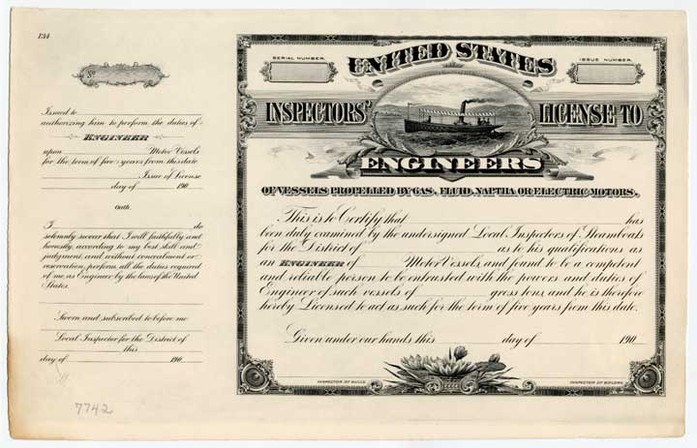 134
No
Issued to
authorizing him to perform the duties of
ENGINEER
upon Motor Vessels
for the term of five years from this date.
Issue of License
day of 190
Oath.
I do
solemnly swear that I will faithfully and
honestly, according to my best skill and
judgment, and without concealment or
reservation, perform all the duties required
of me as Engineer by the laws of the United
States.
Sworn and subscribed to before me
Local Inspector for the District of
this
day of 190
7742
SERIAL NUMBER.
UNITED STATES
ISSUE NUMBER.
INSPECTORS' LICENSE TO
ENGINEERS
OF VESSELS PROPELLED BY GAS, FLUID, NAPTHA OR ELECTRIC MOTORS.
This is to Certify that has
been duly examined by the undersigned Local Inspectors of Steamboats
for the District of as to his qualifications as
an ENGINEER of Motor Vessels, and found to be a competent
and reliable person to be entrusted with the powers and duties of
Engineer of such vessels of gross tons, and he is therefore
hereby Licensed to act as such for the term of five years from this date.
Given under our hands this day of 190
INSPECTOR OF HULLS
INSPECTOR OF BOILERS